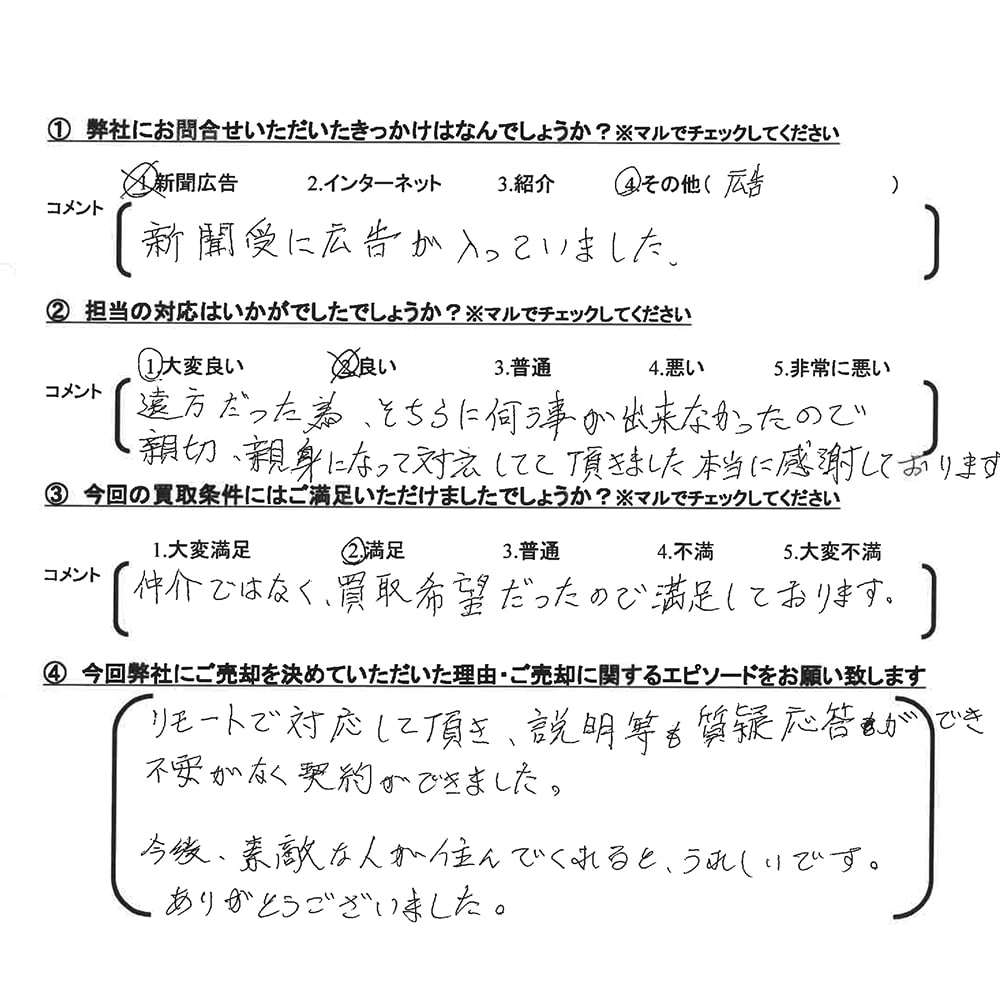 ① 弊社にお問合せいただいたきっかけはなんでしょうか？※マルでチェックしてください
1.新聞広告 2.インターネット 3.紹介 4.その他( 広告 )
コメント
新聞受に広告が入っていました。
② 担当の対応はいかがでしたでしょうか？※マルでチェックしてください
1.大変良い 2.良い 3.普通 4.悪い 5.非常に悪い
コメント
遠方だった為、そちらに伺う事が出来なかったので
親切、親身になって対応してて頂きました本当に感謝しております
③ 今回の買取条件にはご満足いただけましたでしょうか？※マルでチェックしてください
1.大変満足 2.満足 3.普通 4.不満 5.大変不満
コメント
仲介ではなく、買取希望だったので満足しております。
④ 今回弊社にご売却を決めていただいた理由・ご売却に関するエピソードをお願い致します
リモートで対応して頂き、説明等も質疑応答もができ
不安がなく契約ができました。
今後、素敵な人が住んでくれると、うれしいです。
ありがとうございました。